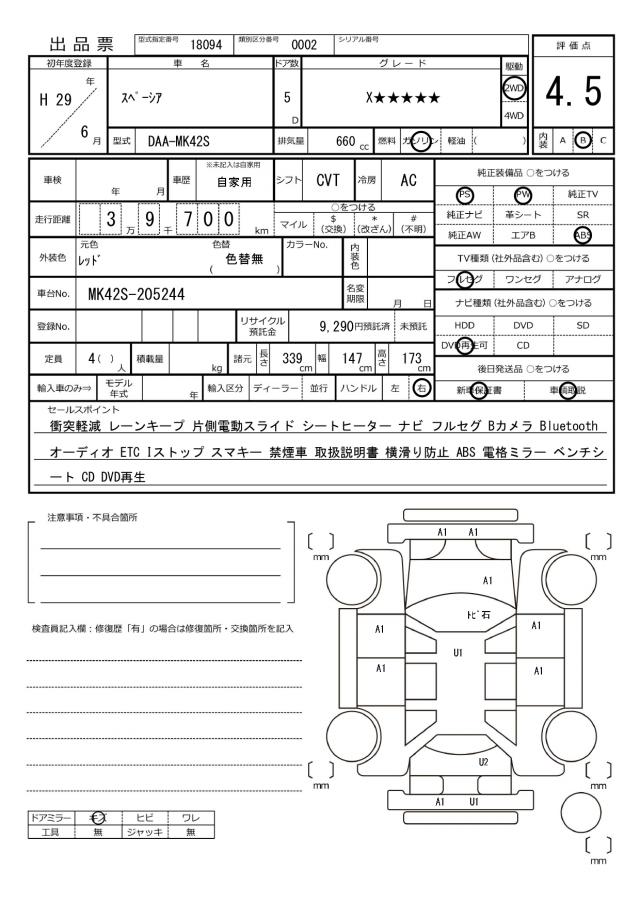 出品票
型式指定番号 18094 類別区分番号 0002 シリアル番号
評価点
初年度登録 車名 ドア数 グレード 駆動
H 29 年 6 月
ｽﾍﾟｰｼｱ
5 D
X★★★★★
2WD
4WD
4.5
型式 DAA-MK42S 排気量 660 cc 燃料 ガソリン 軽油 ( )
内装 A B C
車検 年 月 車歴 ※未記入は自家用 自家用 シフト CVT 冷房 AC
純正装備品 ○をつける
PS PW 純正TV
純正ナビ 革シート SR
純正AW エアB ABS
走行距離 3 万 9 千 7 0 0 km
○をつける
マイル $ (交換) * (改ざん) # (不明)
外装色 元色 ﾚｯﾄﾞ 色替 ( 色替無 ) カラーNo. 内装色
TV種類 (社外品含む) ○をつける
フルセグ ワンセグ アナログ
車台No. MK42S-205244 名変期限 月 日
ナビ種類 (社外品含む) ○をつける
登録No. リサイクル預託金 9,290円預託済 未預託
HDD DVD SD
DVD再生可 CD
定員 4 ( ) 人 積載量 kg 諸元 長さ 339 cm 幅 147 cm 高さ 173 cm
後日発送品 ○をつける
輸入車のみ⇒ モデル年式 年 輸入区分 ディーラー 並行 ハンドル 左 右
新車保証書 車輌取説
セールスポイント
衝突軽減 レーンキープ 片側電動スライド シートヒーター ナビ フルセグ Bカメラ Bluetooth
オーディオ ETC Iストップ スマキー 禁煙車 取扱説明書 横滑り防止 ABS 電格ミラー ベンチシ
ート CD DVD再生
注意事項・不具合箇所
検査員記入欄：修復歴「有」の場合は修復箇所・交換箇所を記入
ドアミラー キズ ヒビ ワレ
工具 無 ジャッキ 無
A1 A1
mm mm
A1
ﾄﾋﾞ石
A1 A1
U1
A1 A1
U2
mm mm
A1 U1
mm